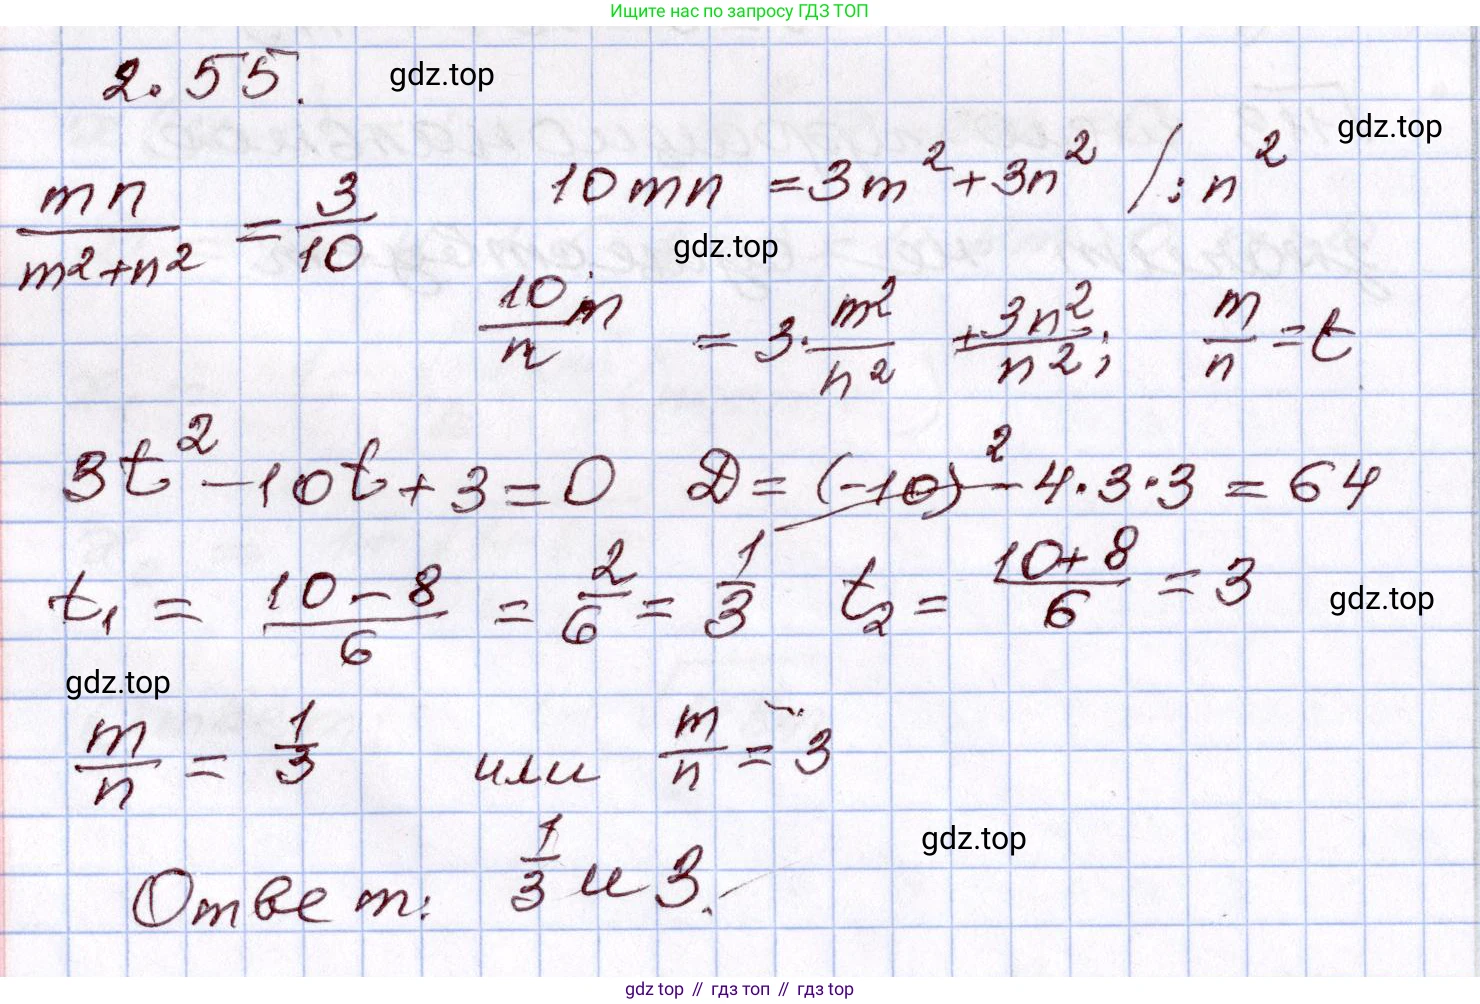 Ищите нас по запросу ГДЗ ТОП
2.55.
gdz.top
gdz.top
mn/(m²+n²) = 3/10
10mn = 3m² + 3n² /: n²
gdz.top
10m/n = 3·m²/n² + 3n²/n²; m/n = t
3t² - 10t + 3 = 0 D = (-10)² - 4·3·3 = 64
t₁ = (10-8)/6 = 2/6 = 1/3 t₂ = (10+8)/6 = 3
gdz.top
gdz.top
m/n = 1/3 или m/n = 3
gdz.top
Ответ: 1/3 и 3.
gdz.top // гдз топ // гдз top